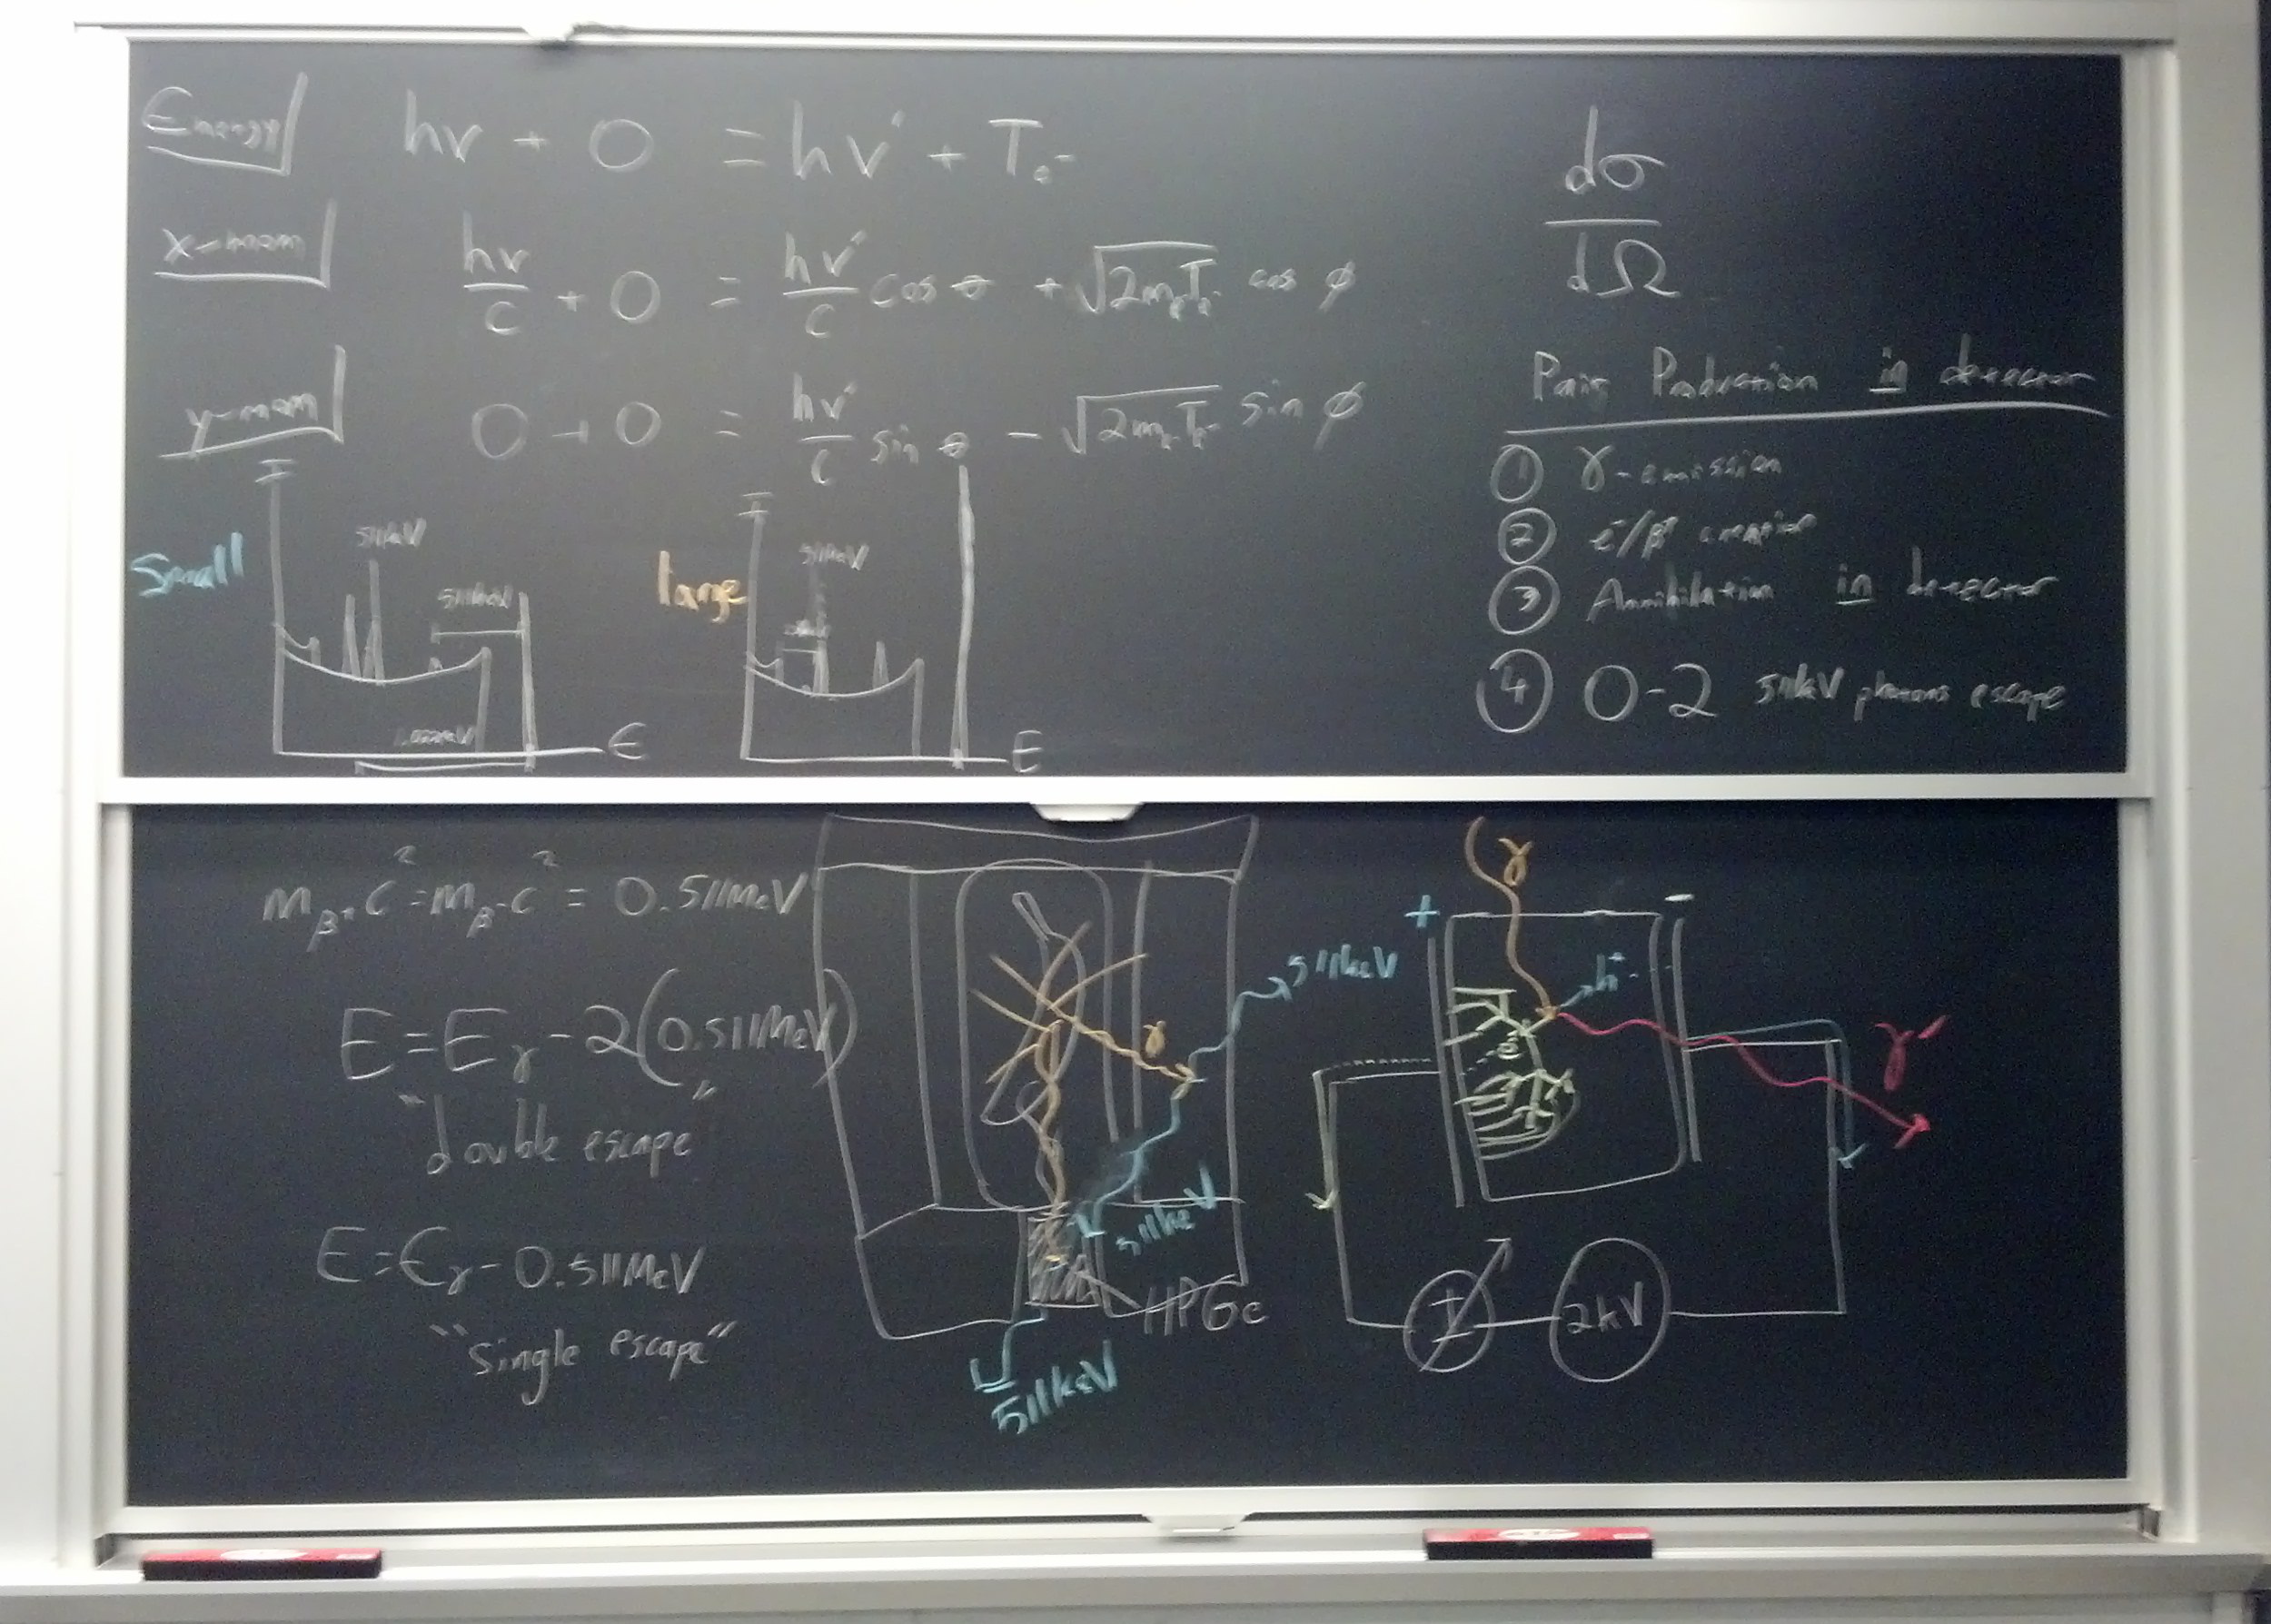 Energy hν + 0 = hν' + Te-
x-mom hν/c + 0 = hν'/c cos θ + √2meTe- cos ϕ
y-mom 0 + 0 = hν'/c sin θ - √2meTe- sin ϕ
dσ/dΩ
Pair Production in detector
① γ-emission
② e-/β+ creation
③ Annihilation in detector
④ 0-2 511keV photons escape
Small
I
511keV
511keV
1.022MeV
E
large
I
511keV
E
mβ+c²=mβ-c² = 0.511MeV
E=Eγ-2(0.511MeV)
"double escape"
E=Eγ-0.511MeV
"Single escape"
γ
511keV
511keV
HPGe
511keV
γ
+
-
h+
e-
γ'
I
2kV